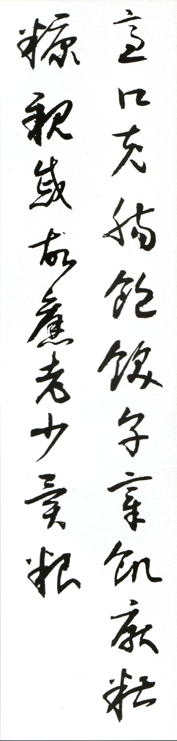 適口充腸飽飫烹宰飢厭糟
糠親戚故舊老少異粮